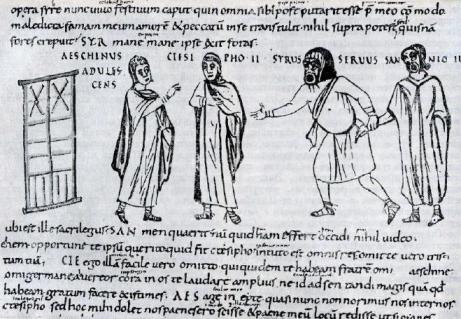 opera frr̄e nunc uiuo festiuum caput quin omnia sibi post putarit esse p̄ meo cōmodo
maledicta famam meum amorē & peccatū inse transtulit nihil supra potest quisnā
fores crepuit SYR mane mane ipse exit foras
AESCHINUS CTESI PHO II SYRUS SERUUS SAN NIO II
ADULES
CENS
ubi est ille sacrilegus SAN men quaerit nū quid nam effert occidi nihil video
ehem opportune te ipsū quero quid fit ctesipho intuto est omnis res omitte vero tris
tuā CTE ego illā facile vero omitto qui quidem te habeam fratrem o mi aeschine
o mi germane a uereor corā in os te laudare amplius ne id adsentandi magis quā qđ
habeam gratum facere existumes AES age inepte quasi nunc non norimus nos internos
ctesipho sed hoc mihi dolet nos paene sero scisse & paene in eū locū redisse ut si omnes